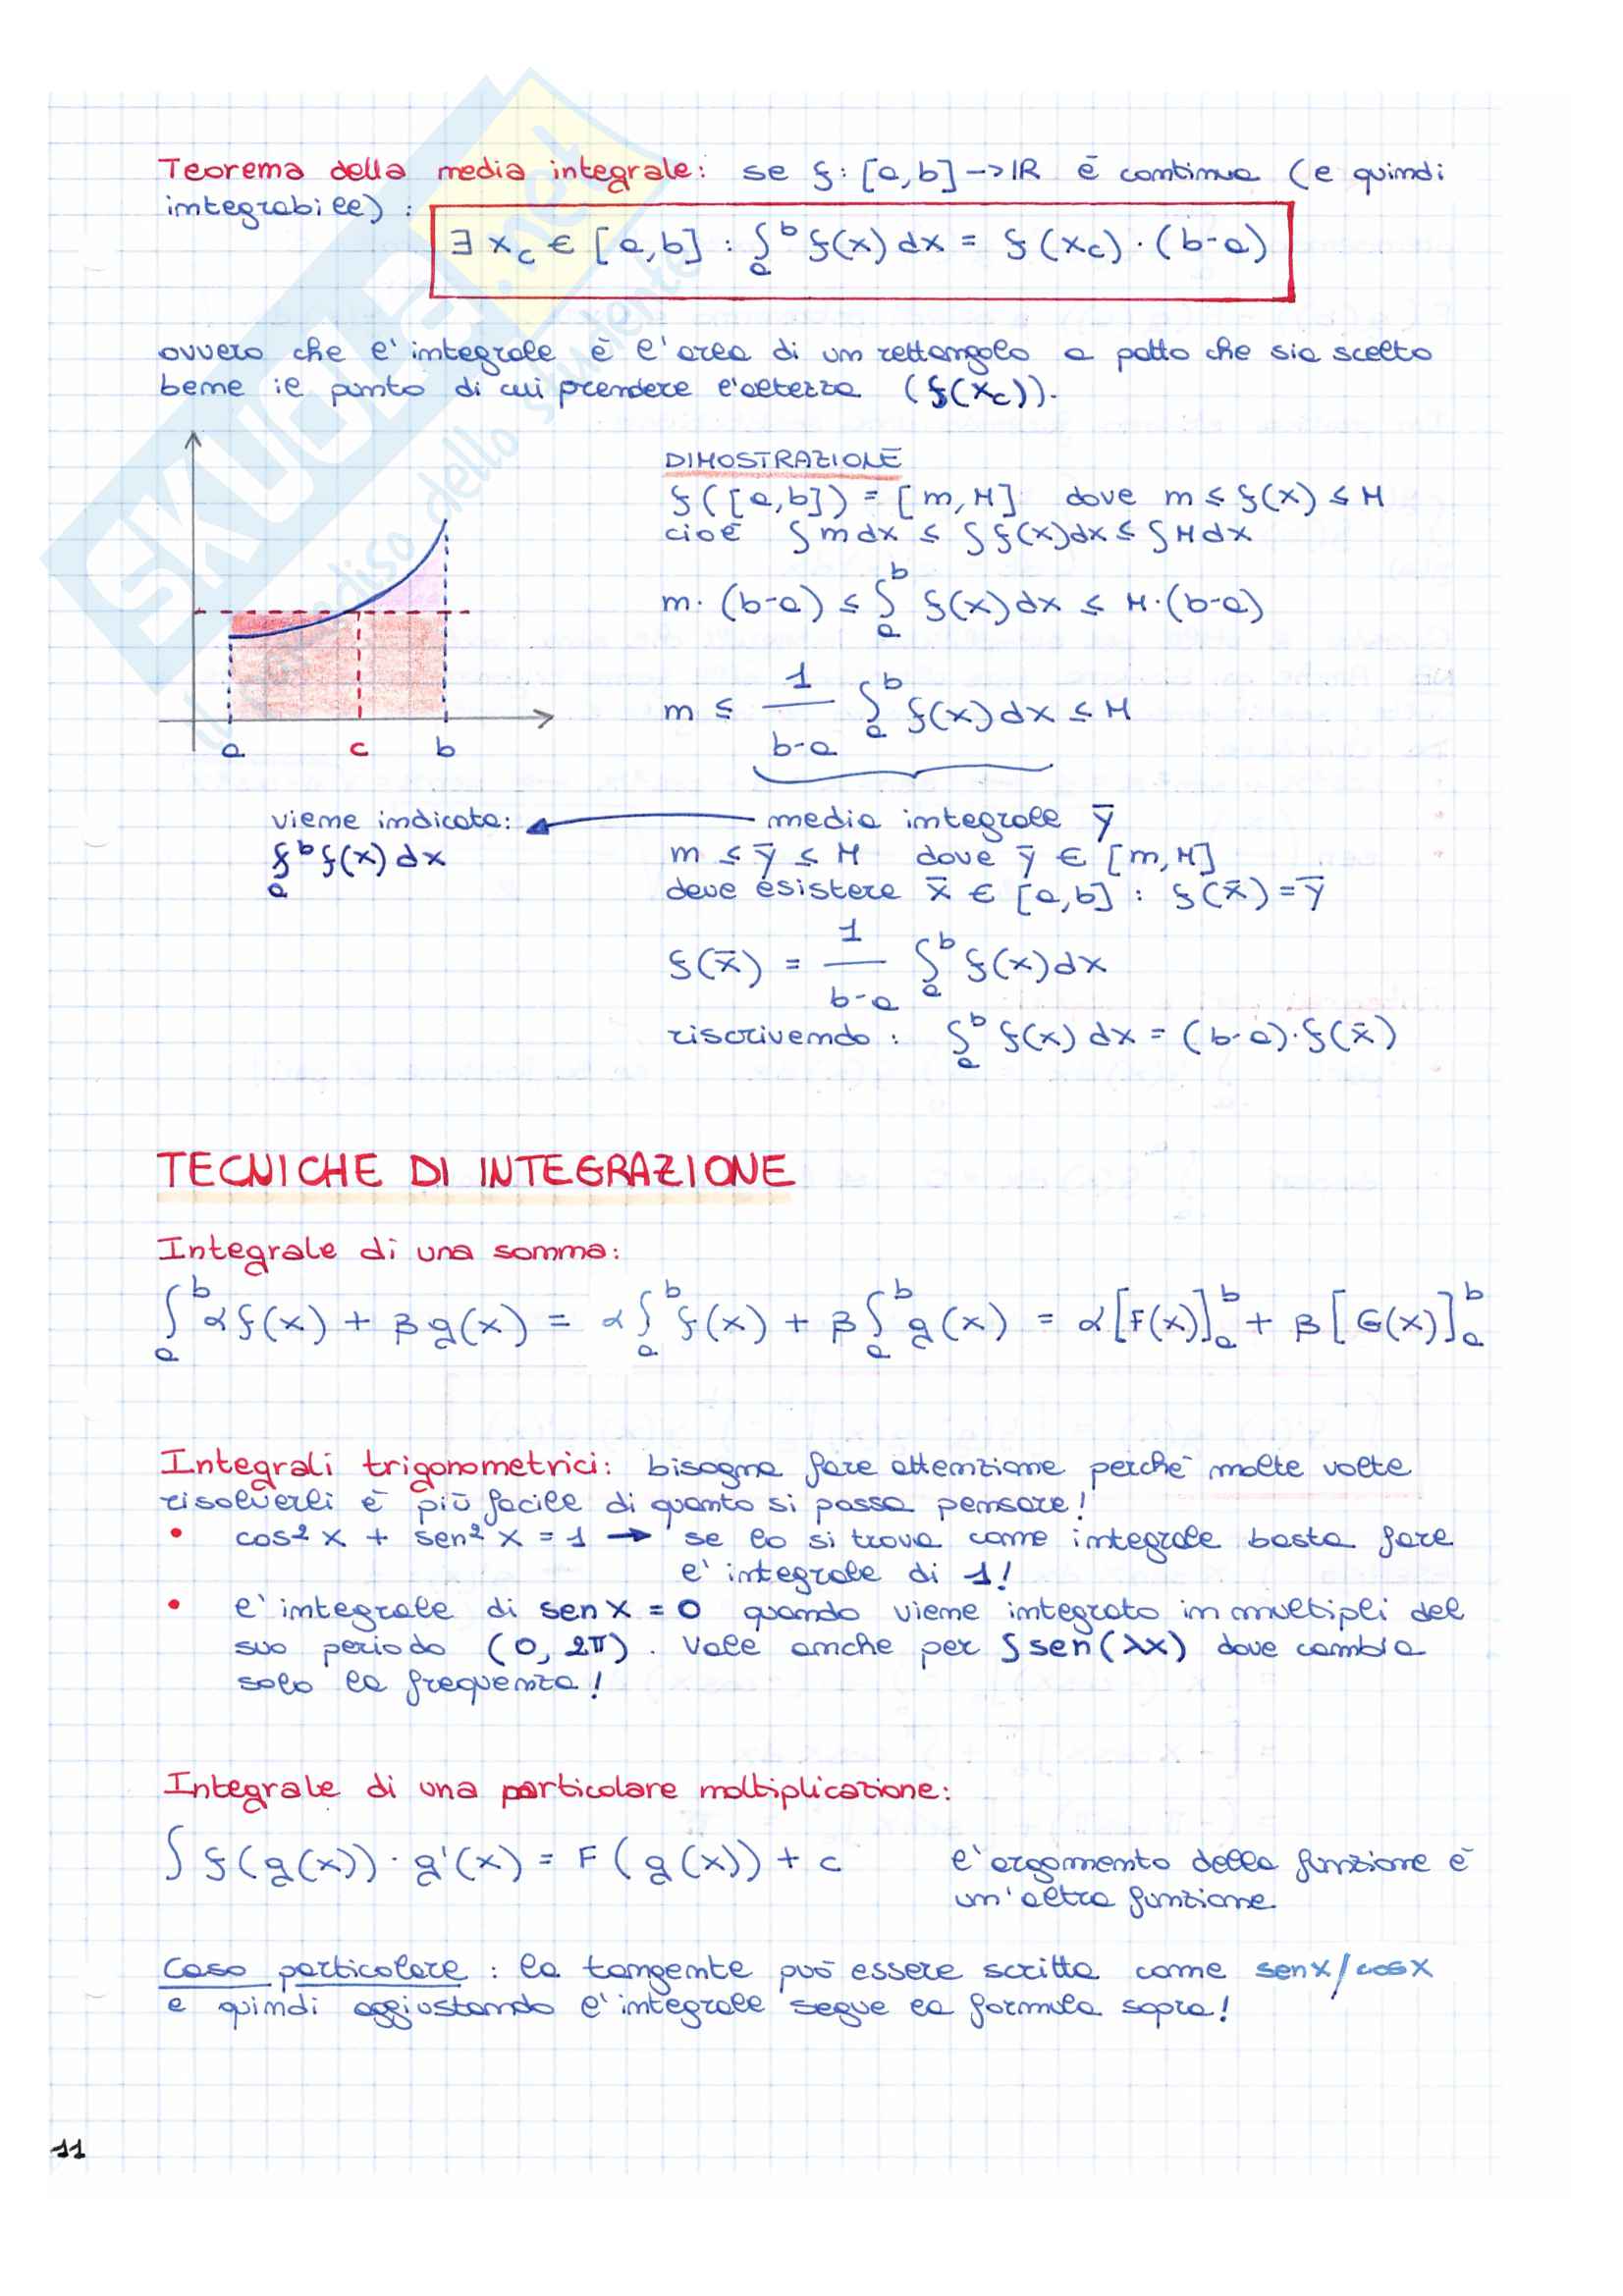 Teorema della media integrale: se f: [a,b] → IR è continua (e quindi
integrabile):
∃ x_c ∈ [a,b] : ∫_a^b f(x) dx = f(x_c) · (b-a)
ovvero che l'integrale è l'area di un rettangolo a patto che sia scelto
bene il punto di cui prendere l'altezza (f(x_c)).
DIMOSTRAZIONE
f([a,b]) = [m,M] dove m ≤ f(x) ≤ M
cioè ∫ m dx ≤ ∫ f(x)dx ≤ ∫ M dx
m · (b-a) ≤ ∫_a^b f(x)dx ≤ M·(b-a)
m ≤ 1/(b-a) ∫_a^b f(x)dx ≤ M
a c b
viene indicata: media integrale ȳ
⨍_a^b f(x) dx
m ≤ ȳ ≤ M dove ȳ ∈ [m,M]
deve esistere x̄ ∈ [a,b] : f(x̄) = ȳ
f(x̄) = 1/(b-a) ∫_a^b f(x)dx
riscrivendo : ∫_a^b f(x) dx = (b-a)·f(x̄)
TECNICHE DI INTEGRAZIONE
Integrale di una somma:
∫_a^b αf(x) + βg(x) = α∫_a^b f(x) + β∫_a^b g(x) = α[F(x)]_a^b + β[G(x)]_a^b
Integrali trigonometrici: bisogna fare attenzione perchè molte volte
risolverli è più facile di quanto si possa pensare!
• cos² x + sen² x = 1 → se lo si trova come integrale basta fare
l'integrale di 1!
• l'integrale di sen x = 0 quando viene integrato in multipli del
suo periodo (0, 2π). Vale anche per ∫ sen(λx) dove cambia
solo la frequenza!
Integrale di una particolare moltiplicazione:
∫ f(g(x)) · g'(x) = F(g(x)) + c l'argomento della funzione è
un'altra funzione.
Caso particolare : la tangente può essere scritta come senx/cosx
e quindi aggiustando l'integrale segue la formula sopra!
11
SKUOLA.net
il paradiso dello studente